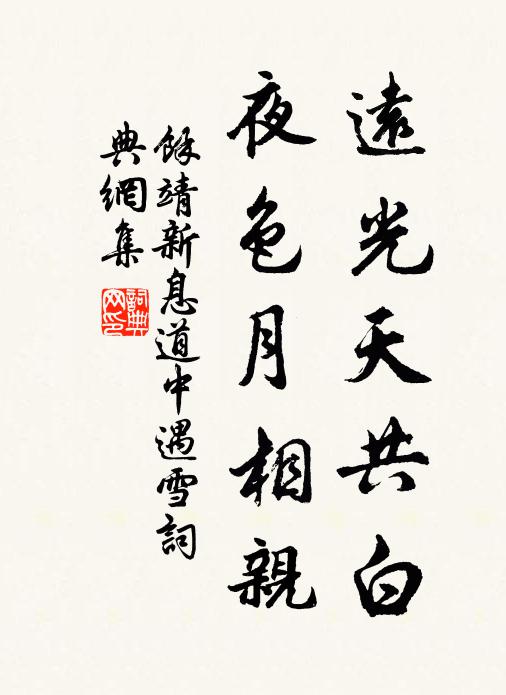 遠光天共白
夜色月相親
餘靖新息道中遇雪詞
典網集
詞典網印